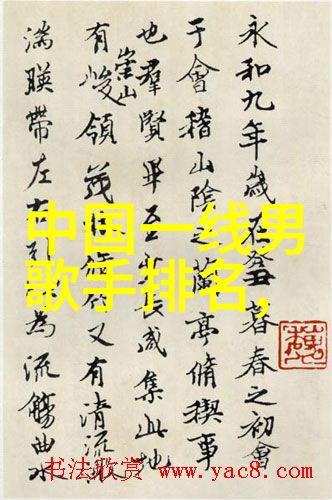 永和九年歲在癸丑暮春之初會
于會稽山陰之蘭亭脩稧事
也羣賢畢至少長咸集此地
有崇山峻領茂林脩竹又有清流激
湍暎帶左右引以為流觴曲水
中国一线男
歌手排名,
书法欣赏 www.yac8.com